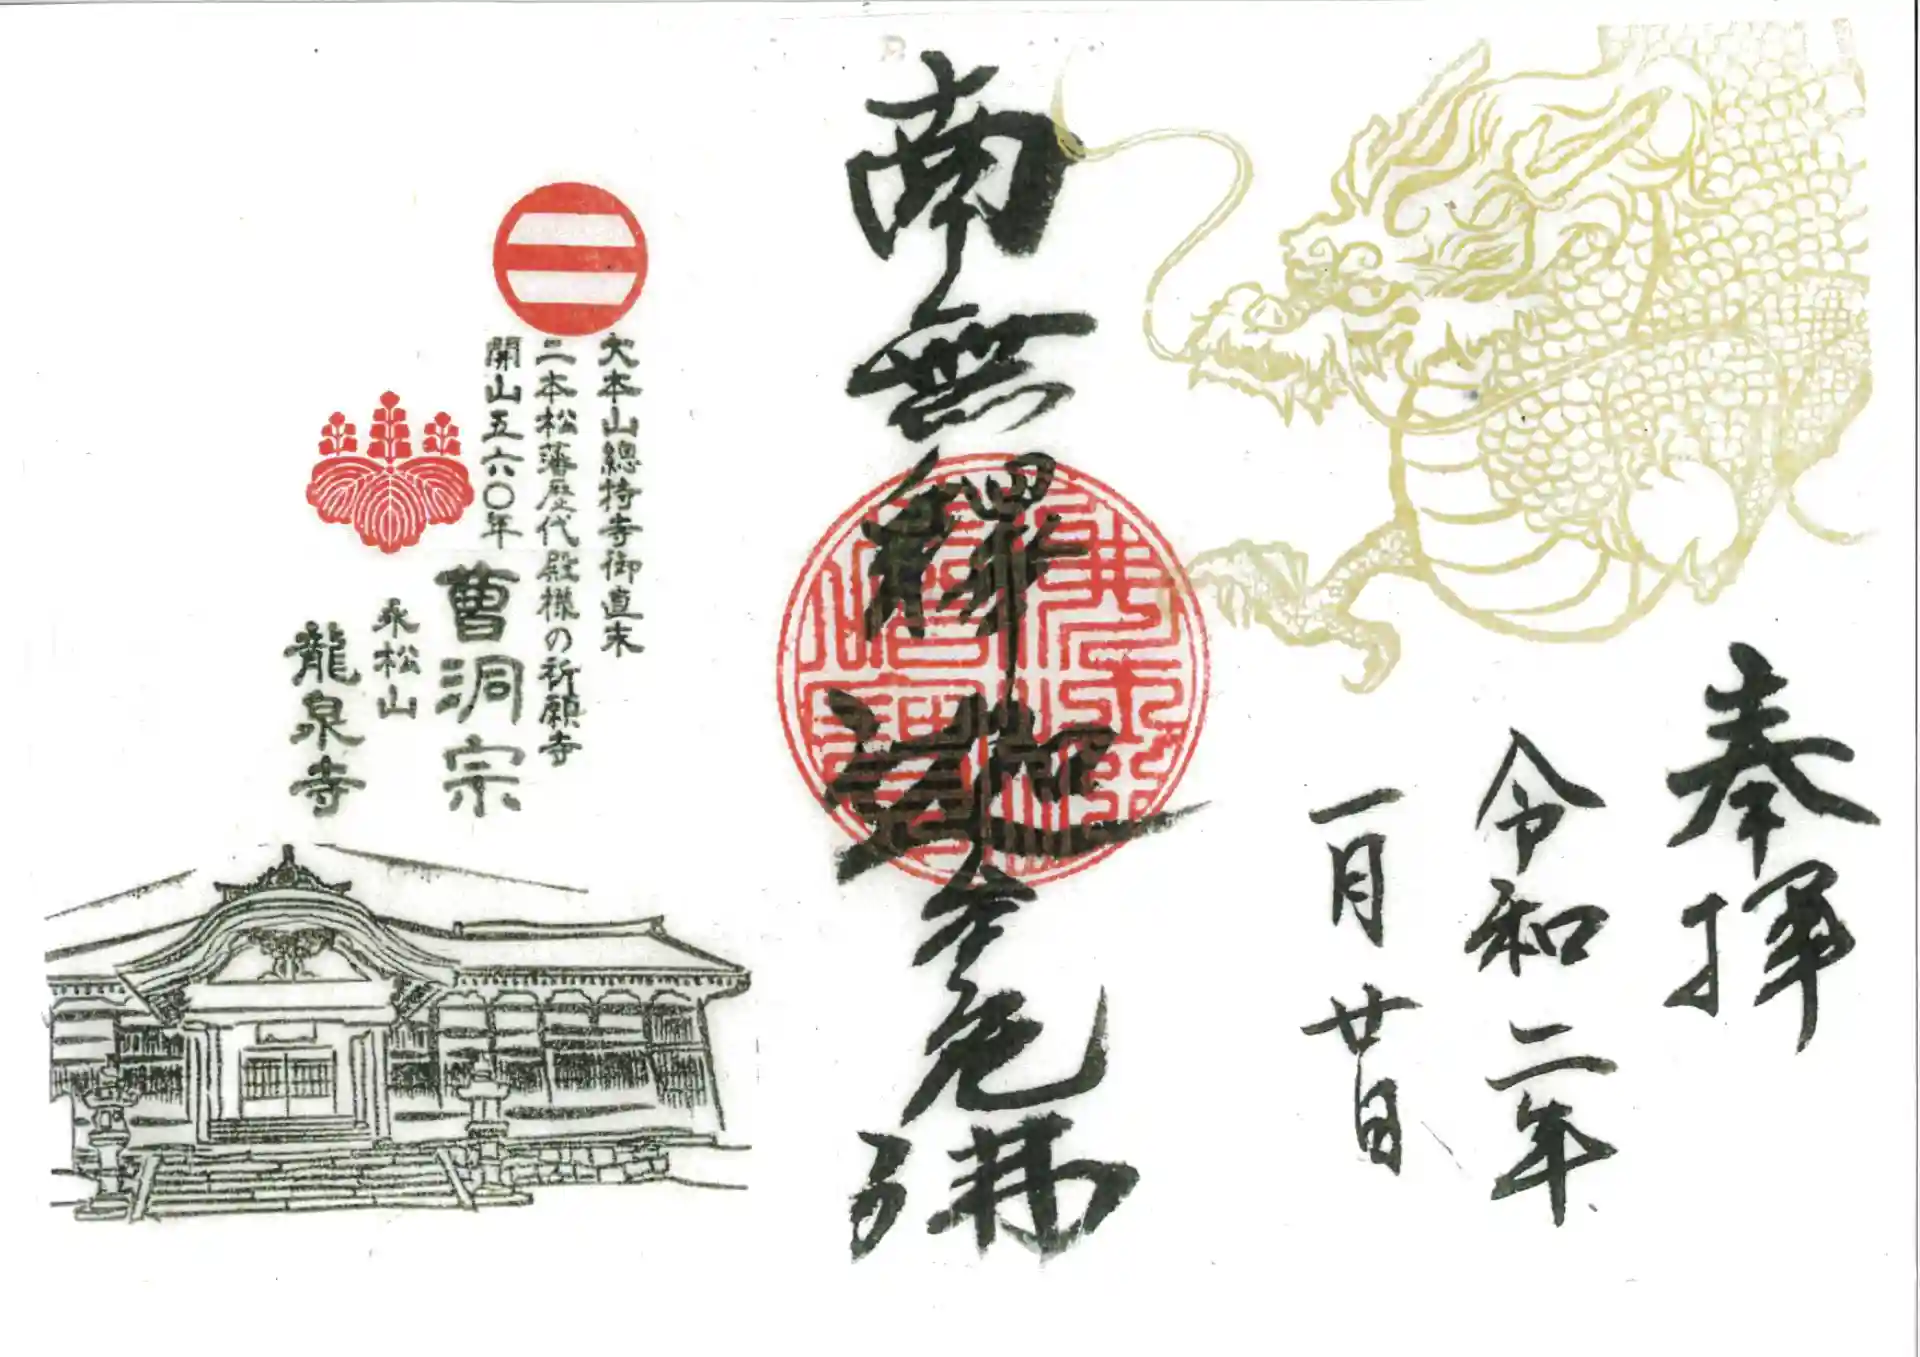 奉拝
令和二年
一月廿日
南無釋迦牟尼佛
佛法僧寶
大本山總持寺御直末
二本松藩歴代殿様の祈願寺
開山五六〇年
曹洞宗
永松山
龍泉寺